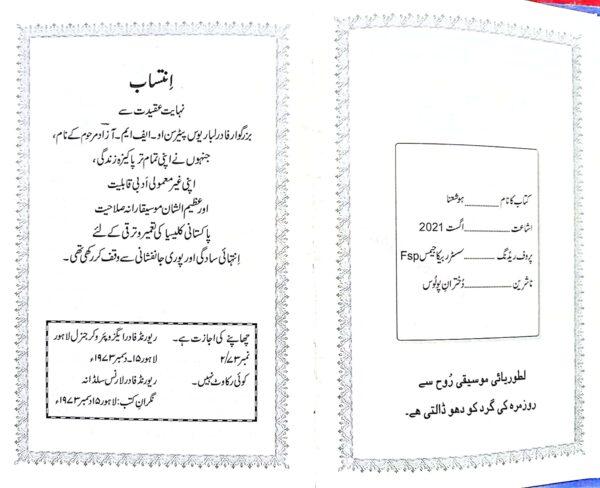 کتاب کا نام ............ ہوشعنا
اشاعت ............ اگست 2021
پروف ریڈنگ ............ سسٹر ریبکا جیمس Fsp
ناشرین ............ دُخترانِ پولُوس
لطوریائی موسیقی رُوح سے
روزمرہ کی گرد کو دھو ڈالتی ھے۔
اِنتساب
نہایت عقیدت سے
بزرگوار فادر لباریوس پیٹرسن او۔ ایف ایم۔ آزاد مرحوم کے نام،
جنہوں نے اپنی تمام تر پاکیزہ زندگی،
اپنی غیر معمولی اَدبی قابلیت
اور عظیم الشان موسیقارانہ صلاحیت
پاکستانی کلیسیا کی تعمیر و ترقی کے لئے
اِنتہائی سادگی اور پوری جانفشانی سے وقف کر رکھی تھی۔
چھاپنے کی اجازت ہے۔ ریورنڈ فادر ایگزہ پئرو کر جنرل لاہور
نمبر ۲/۷۳ لاہور ۱۵۔ دسمبر ۱۹۷۳ء
کوئی رکاوٹ نہیں۔ ریورنڈ فادر لارنس سلڈانہ
نگرانِ کتب: لاہور ۱۵ دسمبر ۱۹۷۳ء